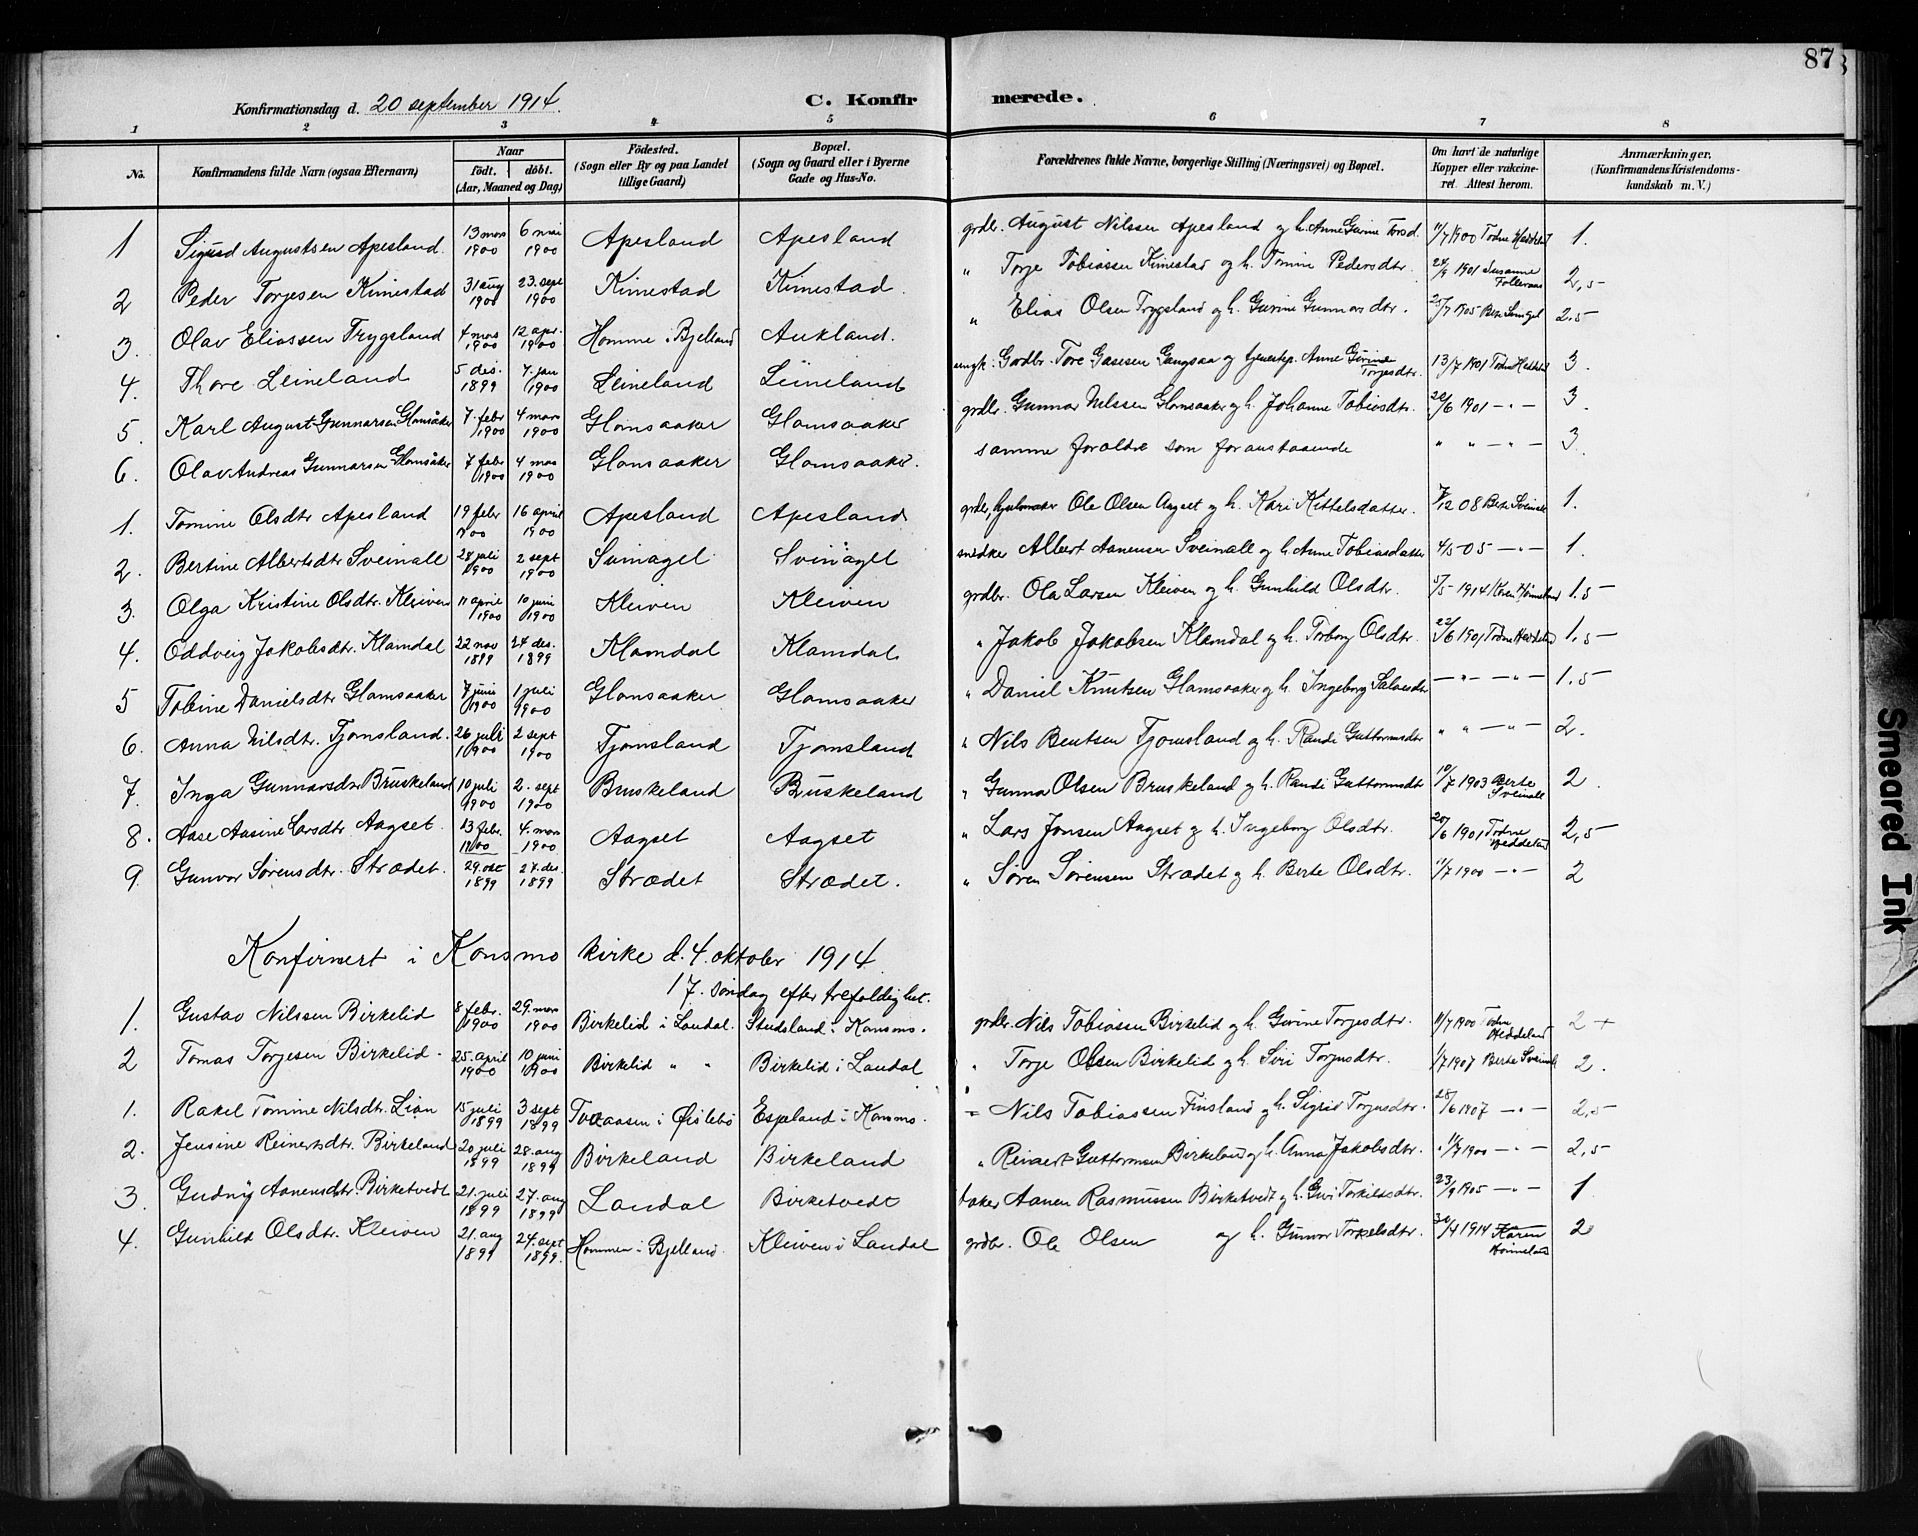 87
Konfirmationsdag d. 20 september 1914.
C. Konfirmerede.
1 2 3 4 5 6 7 8
No. Konfirmandens fulde Navn (ogsaa Efternavn) Naar født. døbt. (Aar, Maaned og Dag) Fødested. (Sogn eller By og paa Landet tillige Gaard) Bopæl. (Sogn og Gaard eller i Byerne Gade og Hus-No. Forældrenes fulde Navne, borgerlige Stilling (Næringsvei) og Bopæl. Om havt de naturlige Kopper eller vakcineret. Attest herom. Anmærkninger. (Konfirmandens Kristendomskundskab m. V.)
1 Sigurd Augustsen Apesland. 13 mars 1900 6 mai 1900 Apesland Apesland grdbr. August Nilssen Apesland og h. Anne Gurine Torsd. 11/7 1900 Todne Heddeland 1.
2 Peder Torjesen Kimestad 31 aug 1900 23. sept 1900 Kimestad Kimestad. " Torje Tobiassen Kimestad og h. Tomine Pedersdtr. 24/9 1901 Susanne 2,5
3. Olav Eliassen Trygsland 4 mars 1900 12 apr. 1900 Homme i Bjelland Aukland. " Elias Olsen Trygsland og h. Gurine Gunnarsdtr. 25/7 1905 2.5
4. Thore Leineland 5 des. 1899 7 jan 1900 Leineland Leineland ungk. Gardbr. Tore Gasesen Gangsaa og Anne Gurine Torjesdtr. 13/7 1901 Todne Heddeland 3
5. Karl August Gunnarsen Glomsåker 7 febr 1900 4 mars 1900 Glomsaaker Glomsaaker grdbr. Gunnar Nilssen Glomsaaker og h. Johanne Tobiasdtr. 22/6 1901 — " — 3.
6. Olav Andreas Gunnarsen Glomsåker 7 febr 1900 4 mars 1900 Glomsaaker Glomsaaker. samme foraldre som foranstaaende " " — " — 3.
1. Tomine Olsdtr Apesland 19 febr 1900 16 april 1900 Apesland Apesland grdbr, hjulmaker Ole Olsen Aagset og h. Kari Kittelsdatter. 7/12 08 Berte Sveinall 1.
2. Bertine Albertsdtr Sveinall 28 juli 1900 2 sept 1900 Svinagel Svinagel snedker Albert Aanensen Sveinall og h. Anne Tobiasdatter 4/5 05 — " — 1.
3. Olga Kristine Olsdtr. Kleiven 11 april 1900 10 juni 1900 Kleiven Kleiven grdbr. Ola Larsen Kleiven og h. Gunhild Olsdtr. 5/5 1914 Karen Hønneland 1.5
4. Oddveig Jakobsdtr. Klamdal 22 nov 1899 24 des. 1899 Klamdal Klamdal " Jakob Jakobsen Klamdal og h. Torborg Olsdtr. 22/6 1901 Todne Heddeland 1.5
5 Tobine Danielsdtr Glomsaaker 7 juni 1900 1 juli 1900 Glomsaaker Glomsaaker " Daniel Knutsen Glomsaaker og h. Ingeborg Salvesdtr — " — — " — 1.5
6. Anna Nilsdtr. Tjomsland. 26 juli 1900 2 sept 1900 Tjomsland Tjomsland " Nils Bentsen Tjomsland og h. Randi Guttormsdtr " " — " — 2.
7. Inga Gunnarsdtr Bruskeland 10 juli 1900 2. sept 1900 Bruskeland Buskeland " Gunnar Olsen Bruskeland og h. Randi Guttormsdtr 10/7 1903 Berte Sveinall 2.
8. Aase Aasine Larsdtr. Aagset. 13 febr. 1900 4. mars 1900 Aagset Aagset " Lars Jonsen Aagset og h. Ingeborg Olsdtr. 20/6 1901 Todne Heddeland 2,5
9. Gunvor Sørensdtr. Strædet. 29. okt 1899 27. des. 1899 Strædet Strædet. " Søren Sørensen Strædet og h. Berte Olsdtr. 11/7 1900 — " — 2
Konfirmert i Konsmo kirke d. 4. oktober 1914
17. søndag efter trefoldighet.
1. Gustav Nilssen Birkelid 8 febr. 1900 29. mars 1900 Birkelid i Laudal. Studsland i Konsmo. grdbr. Nils Tobiassen Birkelid og h. Gurine Torjesdtr. 11/7 1900 Todne Heddeland 2 +
2 Tomas Torjesen Birkelid. 25. april 1900 10 juni 1900 Birkelid " " Birkelid i Laudal " Torje Olssen Birkelid og h. Siri Torjusdtr. 1/7 1907 Berte Sveinall 2.
1. Rakel Tomine Nilsdtr. Lian 15 juli 1899 3 sept 1899 Tveraasen i Øislebø Espeland i Konsmo. " Nils Tobiassen Finsland og h. Sigrid Torjusdtr. 25/6 1907 — " — 2,5
2. Jensine Reinertsdtr. Birkeland 20 juli 1899 28. aug 1899 Birkeland Birkeland " Reinert Guttormsen Birkeland og h. Anna Jakobsdtr. 11/7 1900 — " — 2,5
3. Gudny Aanensdtr. Birketvedt 21. juli 1899 27. aug 1899 Laudal Birketvedt baker Aanen Rasmussen Birketvedt og h. Guri Torkildsdtr. 23/9 1905 — " — 1
4. Gunhild Olsdtr. Kleiven 21. aug 1899 24. sept 1899. Hommen i Bjelland. Kleiven i Laudal grdbr. Ole Olsen og h. Gunvor Torkelsdtr. 30/4 1914 Karen Hønneland 2
Smeared Ink